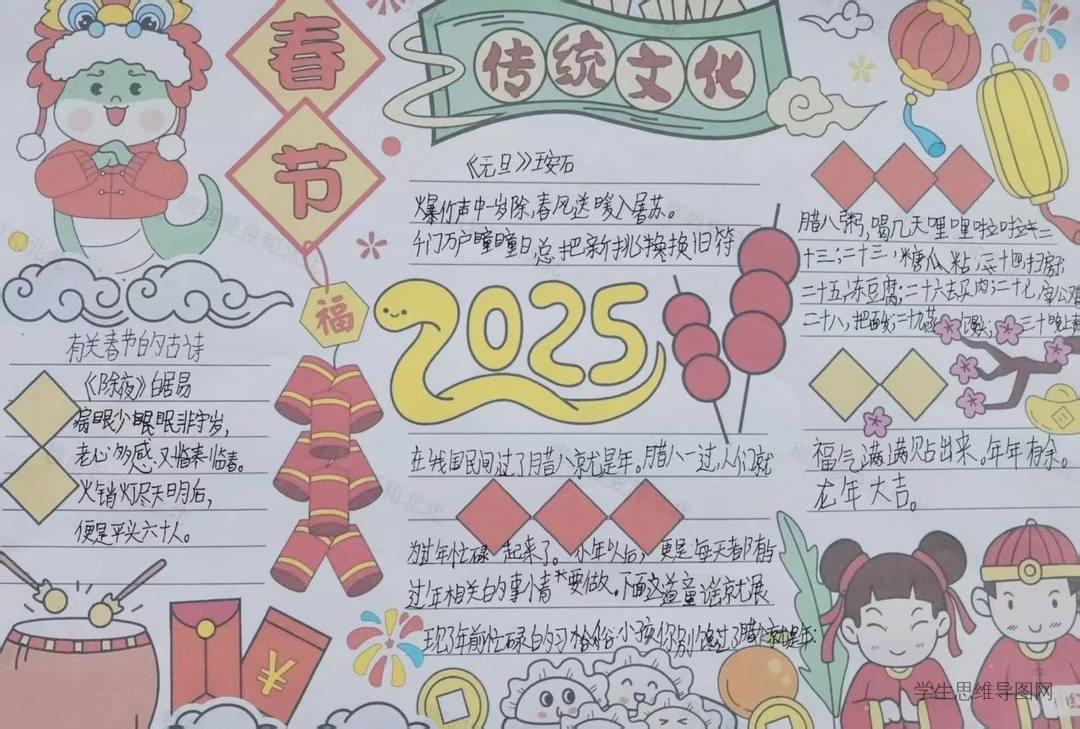 春
节
传统文化
《元旦》王安石
爆竹声中一岁除,春风送暖入屠苏。
千门万户曈曈日总把新桃换旧符
福
2025
有关春节的古诗
《除夜》白居易
病眼少眠眠非守岁,
老心多感又临春。
火销灯尽天明后,
便是平头六十人。
腊八粥,喝几天哩哩啦啦
十三;二十三,糖瓜粘,二十四扫房
二十五,冻豆腐;二十六去买肉;二十七,宰公鸡
二十八,把面发;二十九蒸 三十晚上
福气满满贴出来。年年有余。
龙年大吉。
在我国民间过了腊八京尤是年。腊八一过,人们就
为过年忙碌起来了。小年以后,更是每天都有与
过年相关的事情要做。下面这首童谣就展
现了年前忙碌的习俗小孩你别馋过了腊八就是年:
¥
学生思维导图网